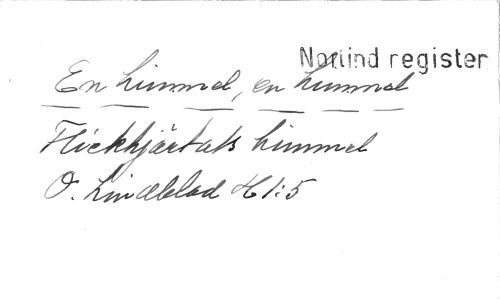 Norlind register
En himmel, en himmel
Flickhjärtats himmel
O. Lindblad H1:5